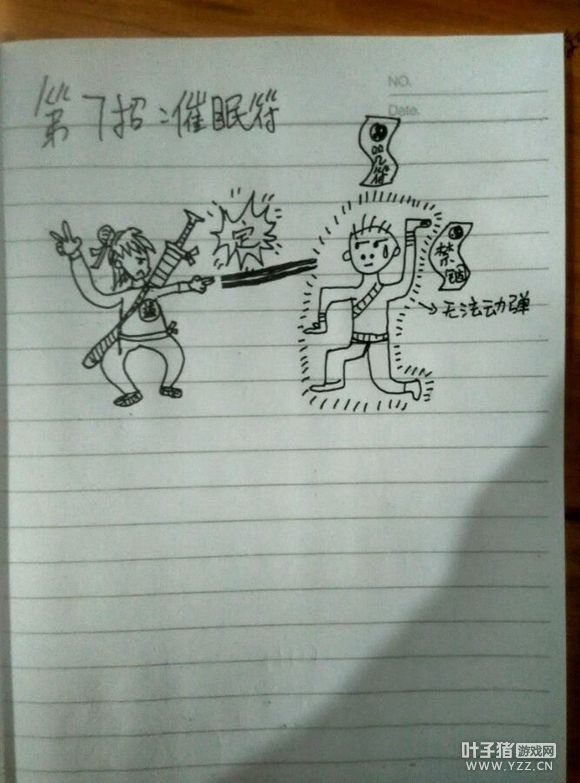 第7招:催眠符
NO.
Date.
定
禁
→无法动弹
叶子猪 游戏网
WWW.YZZ.CN